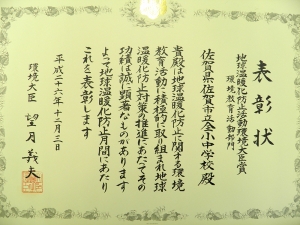 表彰状
地球温暖化防止活動環境大臣賞
環境教育活動部門
佐賀県佐賀市立全小中学校殿
貴殿は地球温暖化防止に関する環境
教育活動に積極的に取り組まれ地球
温暖化防止対策の推進にあたてその
功績は誠に顕著なものがあります
よって地球温暖化防止月間にあたり
これを表彰します
平成二十六年十二月三日
環境大臣 望月義夫